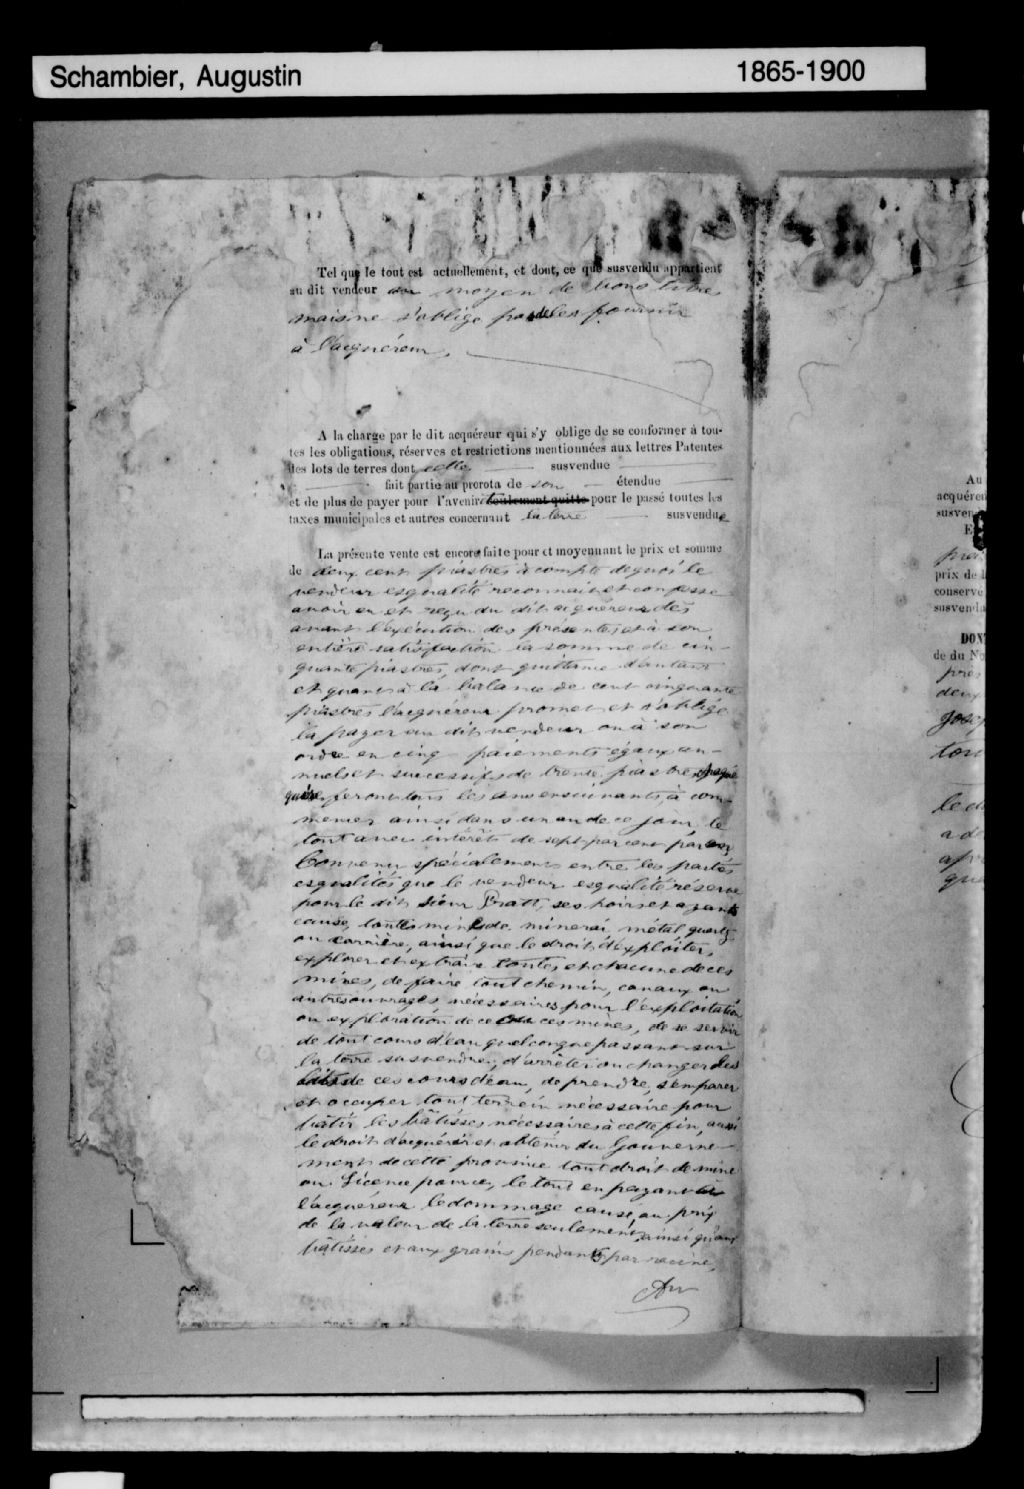 Schambier, Augustin
1865-1900
Tel que le tout est actuellement, et dont, ce que susvendu appartient
au dit vendeur au moyen de bons titres
mais ne s'oblige pas de les fournir
à l'acquéreur.
A la charge par le dit acquéreur qui s'y oblige de se conformer à tou-
tes les obligations, réserves et restrictions mentionnées aux lettres Patentes
des lots de terres dont celle susvendue
fait partie au prorota de son étendue
et de plus de payer pour l'avenir seulement quitte pour le passé toutes les
taxes municipales et autres concernant la terre susvendue
La présente vente est encore faite pour et moyennant le prix et somme
de deux cent piastres à compte de quoi le
vendeur esqualité reconnait et confesse
avoir eu et reçu du dit acquéreur dès
avant l'exécution des présentes et à son
entière satisfaction la somme de cin-
quante piastres, dont quittance d'autant
et quant à la balance de cent cinquante
piastres l'acquéreur promet et s'oblige
la payer au dit vendeur ou à son
ordre en cinq paiements égaux an-
nuels et successifs de trente piastres chaque
qui se feront tous les ans ensuivants, à com-
mencer ainsi dans un an de ce jour, le
tout avec intérêts de sept par cent par an
Convenu spécialement entre les parties
esqualités que le vendeur esqualité réserve
pour le dit Sieur Pratt, ses hoirs et ayant
cause, toutes mines de minerai métal quartz
ou carrière, ainsi que le droit d'exploiter,
explorer et extraire toutes et chacune de ces
mines, de faire tout chemin, canaux ou
autres ouvrages nécessaires pour l'exploitation
ou exploration de ces mines, de se servir
de tout cours d'eau quelconque passant sur
la terre susvendue, d'arrêter ou changer les
lits de ces cours d'eau, de prendre, s'emparer
et occuper tout terrein nécessaire pour
bâtir les bâtisses nécessaires à cette fin, aussi
le droit d'acquérir et obtenir du Gouverne-
ment de cette province tout droit de mine
ou Licence pour ce, le tout en payant à
l'acquéreur le dommage causé au prix
de la valeur de la terre seulement, ainsi qu'aux
bâtisses et aux grains pendants par racine,
Au
acquéreu
susven
prix de l
conservé
susvendu
DON
de du No
près
deux
Josep
tou
le d
a d
apr
que